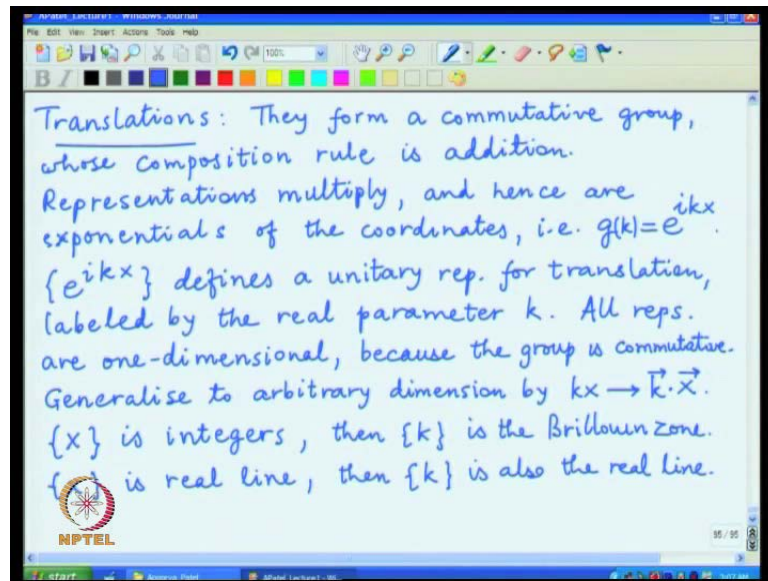 APatel_Lecture1 - Windows Journal
File Edit View Insert Actions Tools Help
100%
B I
Translations: They form a commutative group,
whose composition rule is addition.
Representations multiply, and hence are
exponentials of the coordinates, i.e. g(k)=e^{ikx}.
{e^{ikx}} defines a unitary rep. for translation,
labeled by the real parameter k. All reps.
are one-dimensional, because the group is commutative.
Generalise to arbitrary dimension by kx → k⃗·x⃗.
{x} is integers, then {k} is the Brillouin zone.
is real line, then {k} is also the real line.
NPTEL
95/95
start Apoorva Patel APatel_Lecture1 - Wi... 3:07 AM